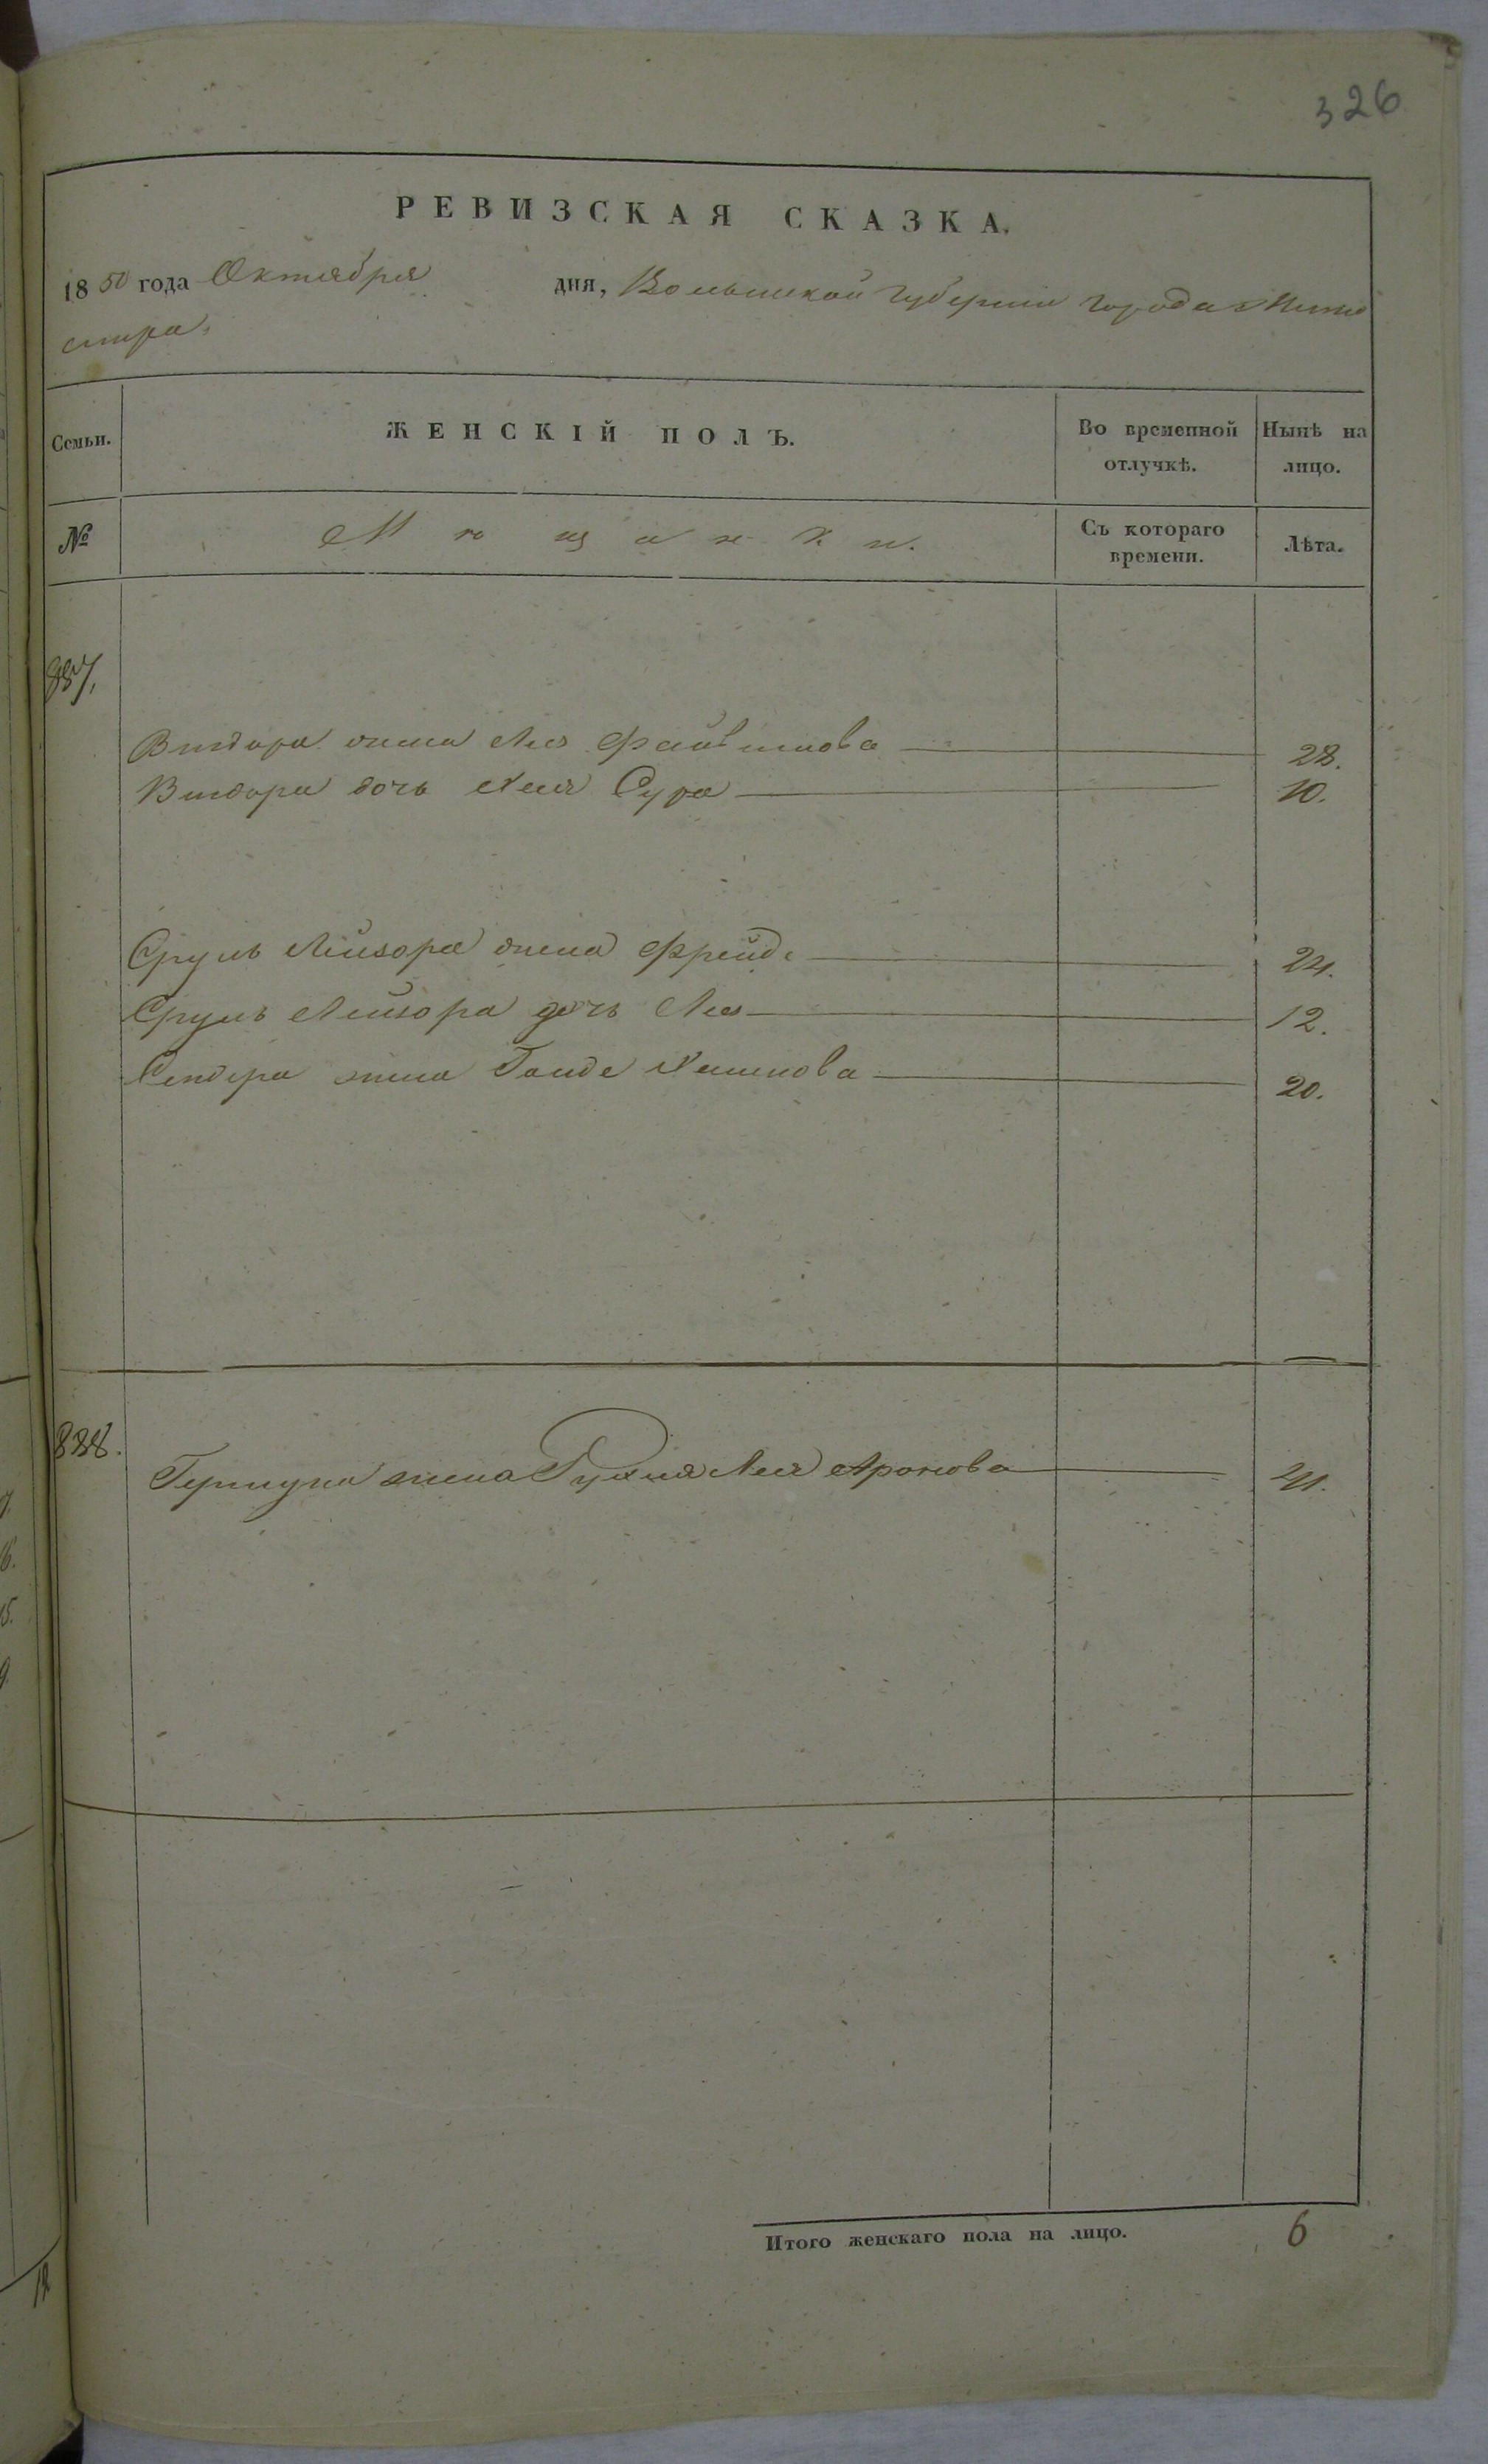 326
РЕВИЗСКАЯ СКАЗКА.
1850 года Октября дня, Волынской губернии города Жито
мира.
Семьи. ЖЕНСКІЙ ПОЛЪ. Во временной отлучкѣ. Нынѣ на лицо.
№ Мѣщанки. Съ котораго времени. Лѣта.
887.
жена Лея Файвишова 28.
дочь Хая Сура 10.
Сруль Лейзора жена Фрейда 24.
Сруль Лейзора дочь Лея 12.
Сендера жена 20.
888.
жена Рухля Лея Аронова 41.
Итого женскаго пола на лицо. 6